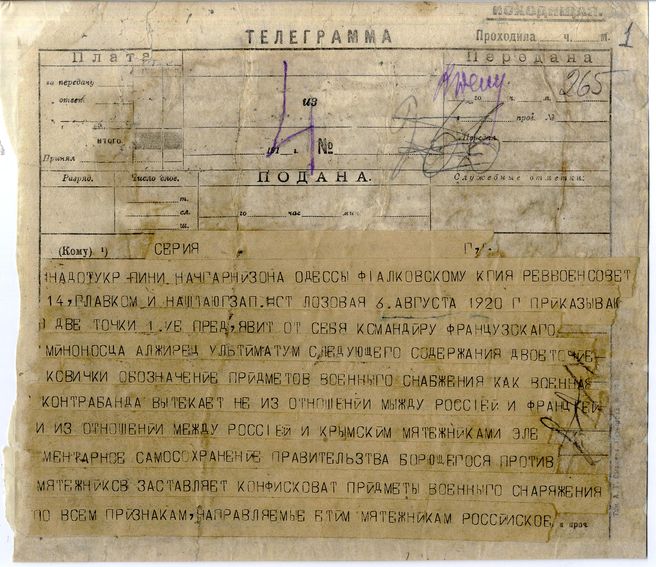 ИСХОДЯЩАЯ.
ТЕЛЕГРАММА
Проходила ч. м.
1
Плата
Передана
за передачу
ответ.
итого
Принял
из
191 г. №
го ч. м.
265
пров. №
Передал
Разряд.
Число слов.
ПОДАНА.
Служебные отметки:
т.
сл.
ш.
го час. мин.
(Кому) ¹)
СЕРИЯ Г,
НАДОТУКР ПИНИ НАЧГАРНИЗОНА ОДЕССЫ ФІАЛКОВСКОМУ КПИЯ РЕВВОЕНСОВЕТ
14,ГЛАВКОМ И НАШТАЮГЗАП.НСТ ЛОЗОВАЯ 6.АВГУСТА 1920 Г ПРИКАЗЫВАЮ
ДВЕ ТОЧКИ 1.УЕ ПРЕД,ЯВИТ ОТ СЕБЯ КОМАНДИРУ ФРАНЦУЗСКАГО
МИНОНОСЦА АЛЖИРЕЦ УЛЬТИМАТУМ СЛЕДУЮЩЕГО СОДЕРЖАНИЯ ДВОЕТОЧИЕ
КОВИЧКИ ОБОЗНАЧЕНИЕ ПРИДМЕТОВ ВОЕННЫГО СНАБЖЕНИЯ КАК ВОЕННАЯ
КОНТРАБАНДА ВЫТЕКАЕТ НЕ ИЗ ОТНОШЕНИИ МЫЖДУ РОССІЕЙ И ФРАНЦИЕЙ
И ИЗ ОТНОШЕНИИ МЕЖДУ РОССІЕЙ И КРЫМСКИМ МЯТЕЖНИКАМИ ЭЛЕ
МЕНТАРНОЕ САМОСОХРАНЕНИЕ ПРАВИТЕЛЬЗТВА БОРЮЩЕГОСЯ ПРОТИВ
МЯТЕЖНИКСВ ЗАСТАВЛЯЕТ КОНФИСКОВАТ ПРИДМЕТЫ ВОЕННЫГО СНАРЯЖЕНИЯ
ПО ВСЕМ ПРИЗНАКАМ,НАПРАВЛЯЕМЫЕ ЕТИМ МЯТЕЖНИКАМ РОССИЙСКОЕ